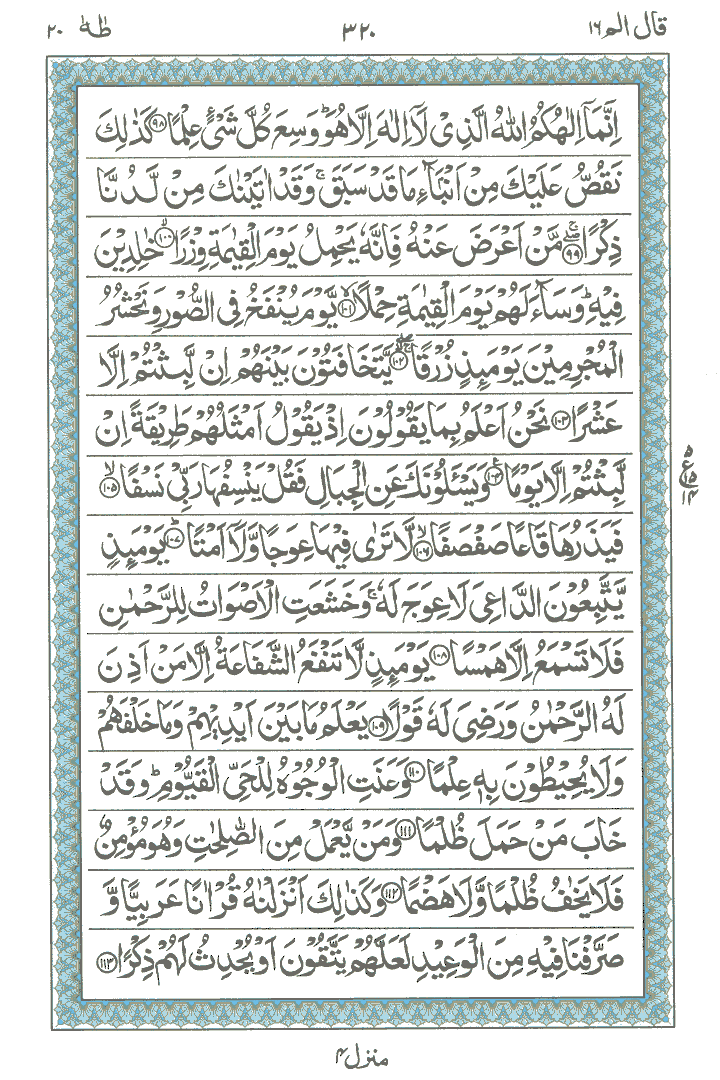 قال الم ١٦ ٣٢٠ طٰهٰ ٢٠
اِنَّمَاۤ اِلٰهُكُمُ اللّٰهُ الَّذِیْ لَاۤ اِلٰهَ اِلَّا هُوَ ؕ وَسِعَ كُلَّ شَیْءٍ عِلْمًا ﴿٩٨﴾ كَذٰلِكَ
نَقُصُّ عَلَیْكَ مِنْ اَنْۢبَآءِ مَا قَدْ سَبَقَ ۚ وَقَدْ اٰتَیْنٰكَ مِنْ لَّدُنَّا
ذِكْرًا ﴿٩٩﴾ ۖۚ مَّنْ اَعْرَضَ عَنْهُ فَاِنَّهٗ یَحْمِلُ یَوْمَ الْقِیٰمَةِ وِزْرًا ﴿١٠٠﴾ ۙ خٰلِدِیْنَ
فِیْهِ ؕ وَسَآءَ لَهُمْ یَوْمَ الْقِیٰمَةِ حِمْلًا ﴿١٠١﴾ ۙ یَّوْمَ یُنْفَخُ فِی الصُّوْرِ وَنَحْشُرُ
الْمُجْرِمِیْنَ یَوْمَىِٕذٍ زُرْقًا ﴿١٠٢﴾ ۖۚ یَّتَخَافَتُوْنَ بَیْنَهُمْ اِنْ لَّبِثْتُمْ اِلَّا
عَشْرًا ﴿١٠٣﴾ نَحْنُ اَعْلَمُ بِمَا یَقُوْلُوْنَ اِذْ یَقُوْلُ اَمْثَلُهُمْ طَرِیْقَةً اِنْ
لَّبِثْتُمْ اِلَّا یَوْمًا ﴿١٠٤﴾ ع وَیَسْـَٔلُوْنَكَ عَنِ الْجِبَالِ فَقُلْ یَنْسِفُهَا رَبِّیْ نَسْفًا ﴿١٠٥﴾ ۙ
٥ ع ١٥ ١٤
فَیَذَرُهَا قَاعًا صَفْصَفًا ﴿١٠٦﴾ ۙ لَّا تَرٰی فِیْهَا عِوَجًا وَّلَاۤ اَمْتًا ﴿١٠٧﴾ ؕ یَوْمَىِٕذٍ
یَّتَّبِعُوْنَ الدَّاعِیَ لَا عِوَجَ لَهٗ ۚ وَخَشَعَتِ الْاَصْوَاتُ لِلرَّحْمٰنِ
فَلَا تَسْمَعُ اِلَّا هَمْسًا ﴿١٠٨﴾ یَوْمَىِٕذٍ لَّا تَنْفَعُ الشَّفَاعَةُ اِلَّا مَنْ اَذِنَ
لَهُ الرَّحْمٰنُ وَرَضِیَ لَهٗ قَوْلًا ﴿١٠٩﴾ یَعْلَمُ مَا بَیْنَ اَیْدِیْهِمْ وَمَا خَلْفَهُمْ
وَلَا یُحِیْطُوْنَ بِهٖ عِلْمًا ﴿١١٠﴾ وَعَنَتِ الْوُجُوْهُ لِلْحَیِّ الْقَیُّوْمِ ؕ وَقَدْ
خَابَ مَنْ حَمَلَ ظُلْمًا ﴿١١١﴾ وَمَنْ یَّعْمَلْ مِنَ الصّٰلِحٰتِ وَهُوَ مُؤْمِنٌ
فَلَا یَخٰفُ ظُلْمًا وَّلَا هَضْمًا ﴿١١٢﴾ وَكَذٰلِكَ اَنْزَلْنٰهُ قُرْاٰنًا عَرَبِیًّا وَّ
صَرَّفْنَا فِیْهِ مِنَ الْوَعِیْدِ لَعَلَّهُمْ یَتَّقُوْنَ اَوْ یُحْدِثُ لَهُمْ ذِكْرًا ﴿١١٣﴾
منزل ٤